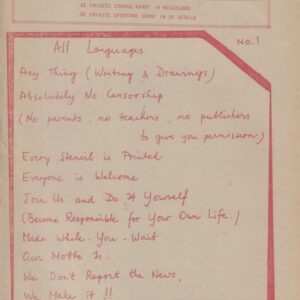 DE ENIGSTE ZONDAG KRANT IN NEDERLAND
DE ENIGSTE SPONTANE KRANT IN DE WERELD
All Languages
NO.1
Any Thing (Writing & Drawings)
Absolutely No Censorship
(No parents, no teachers, no publishers
to give you permission)
Every Stencil is Printed
Everyone is Welcome
Join Us and Do It Yourself
(Become Responsible for Your Own Life.)
Made While-You-Wait
Our Motto Is:
We Dont Report the News,
We Make it !!